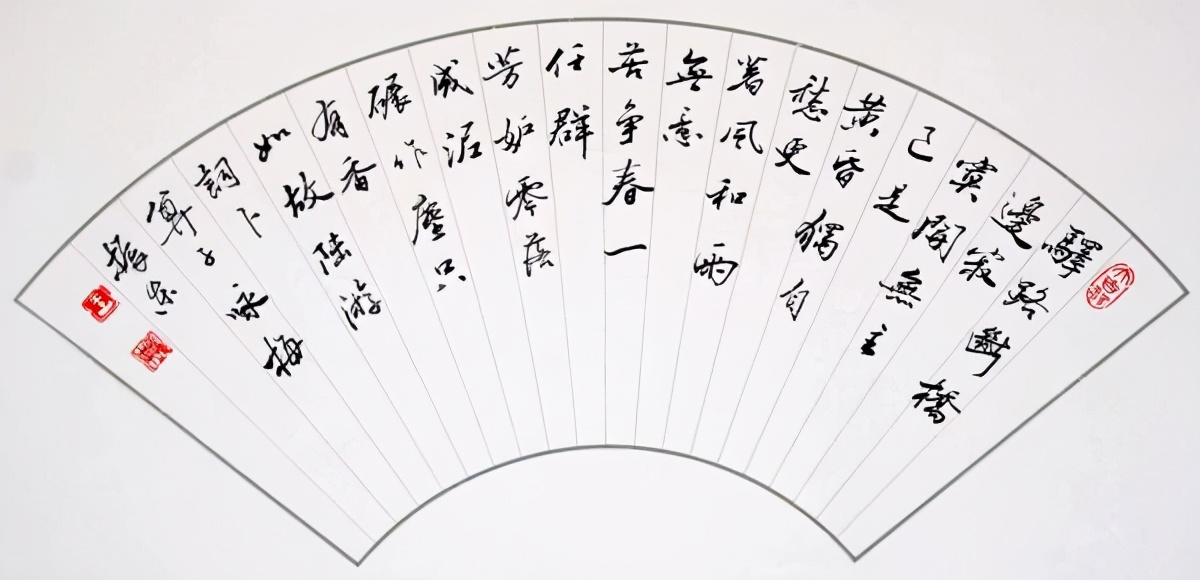 驛路斷橋
邊寂
寞開無主
已是
黃昏獨自
愁更
着風和雨
無意
苦爭春一
任群
芳妒零落
成泥
碾作塵只
有香
如故陸游
詞卜
算子詠梅